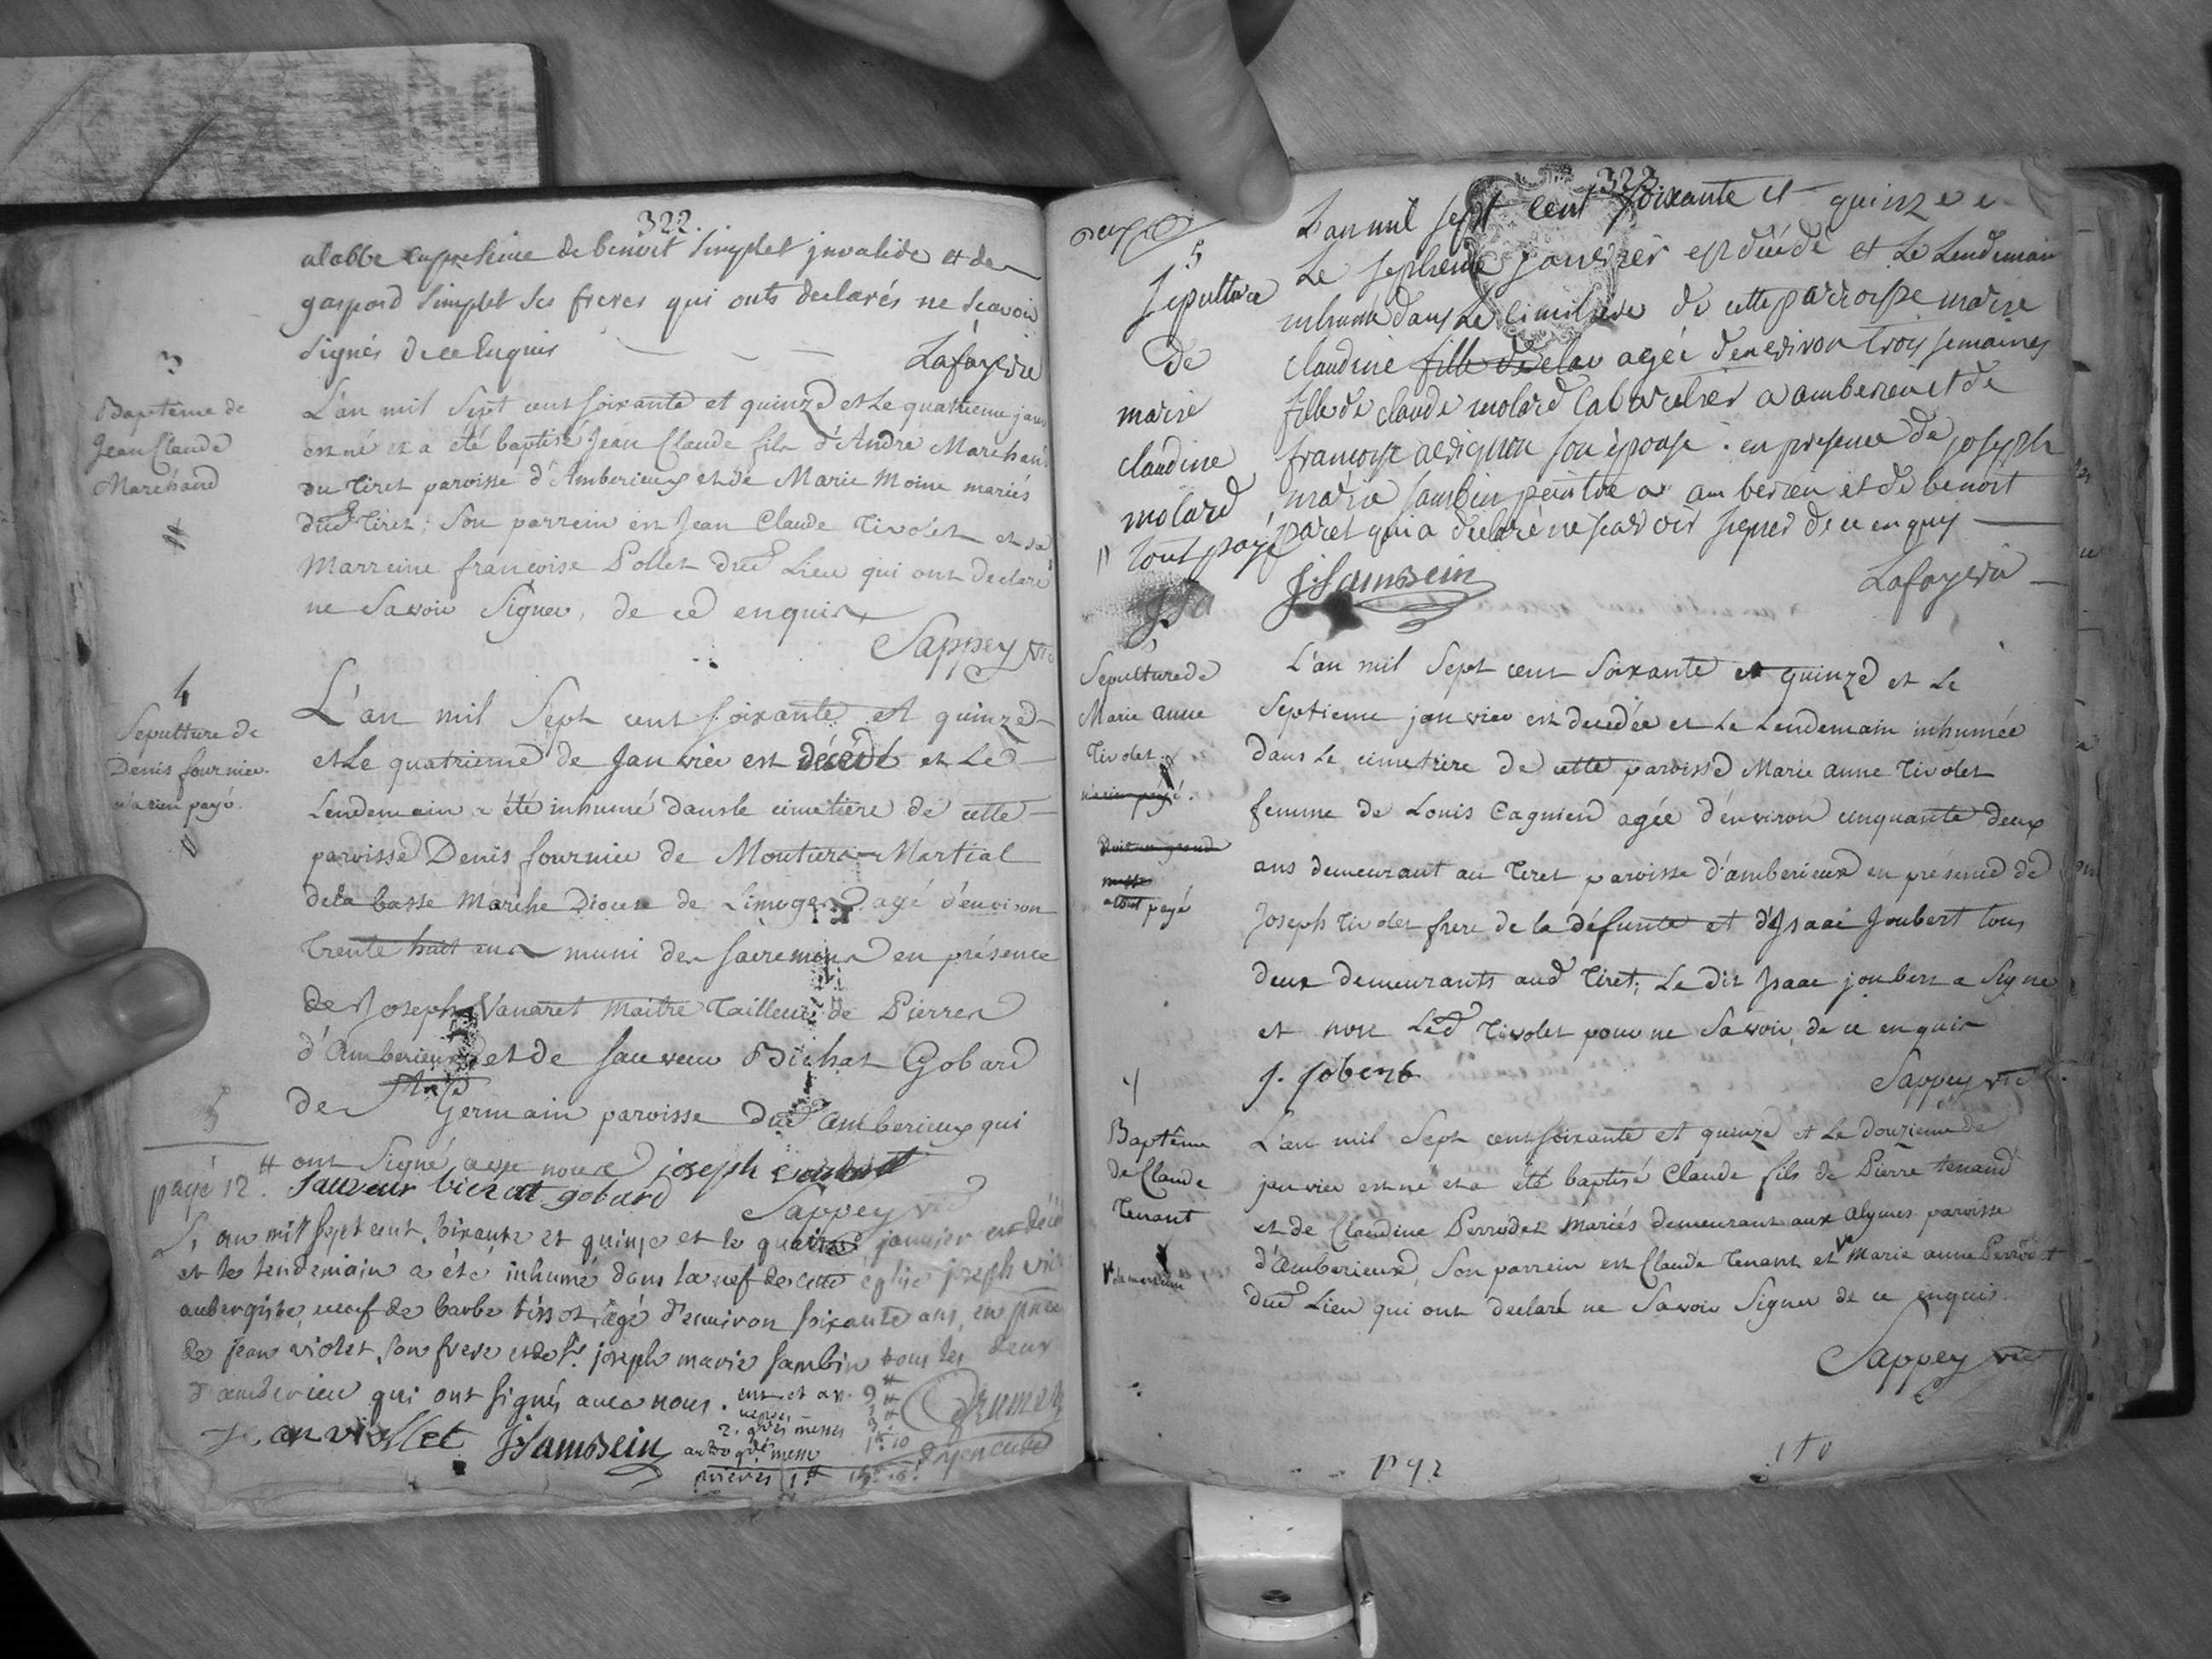 322.
alabbe en presence de benoit simplet invalide et de
gaspard simplet ses freres qui onts declarés ne scavoir
signés de ce Enquis
Lafayère
3
Baptême de
Jean Claude
Maréhand
L'an mil Sept cent soixante et quinze et Le quatrieme janv
est né et a été baptisé Jean Claude fils d'André Marehand
du Tiret paroisse d'Amberieux et de Marie Moine mariés
dud Tiret; Son parrein est Jean Claude Tivolet et sa
Marreine françoise Pollet dud Lieu qui ont declaré
ne Savoir Signer, de ce enquis
Sappey vic
4
Sepulture de
Denis fournier.
n'a rien payé.
L'an mil Sept cent soixante et quinze
et Le quatrieme de Janvier est décédé et Le
Lendemain a été inhumé dans le cimetiere de cette
paroisse Denis fournier de Moutiers-Martial
de la basse Marche Diocese de Limoges agé d'environ
Trente huit ans muni des sacremens en présence
de Joseph Vanaret Maitre Tailleur de Pierres
d'Amberieux et de sauveur Bichat Gobard
de St Germain paroisse dud Amberieux qui
ont Signé avec nous joseph
sauveur bichat gobard
Sappey vic
5
payé 12
L'an mil sept cent soixante et quinze et le quatrième janvier est décédé
et le lendemain a été inhumé dans la nef de cette église joseph
aubergiste, veuf de barbe tissot, agé d'environ soixante ans, en présence
de jean violet son frere et de Sr. joseph marie sambin tous les deux
d'amberieu qui ont signés avec nous.
jean viollet J Sambein
ent. et an. 9
vepres 3
2. gdes messes 3
autre gde. messe 1.10
prieres 1
323
5
Sepulture
de
marie
claudine
molard
tout payé
L'an mil sept cent soixante et quinze e
Le septieme janvier est décédé et Le Lendemain
inhumé dans Le cimitiere de cette parroisse marie
claudine fille de clau agée denediron trois semaines
fille de claude molard Cabaretier a amberieu et de
francoise avignon son épouse. en presence de joseph
marie sambin peintre a amberieu et de benoit
paret qui a declaré ne scavoir signer de ce enquis
J. Sambein
Lafayère
Sepulture de
Marie anne
Tivolet.
n'a rien payé.
doit un grand
messe
a tout payé
L'an mil Sept cent Soixante et quinze et Le
Septieme janvier est decedée et Le Lendemain inhumée
dans Le cimetiere de cette paroisse Marie anne Tivolet
femme de Louis Cagnien agée d'environ cinquante deux
ans demeurant au Tiret paroisse d'amberieux en présence de
Joseph Tivolet frere de la défunte et d'Isaac Joubert tous
deux demeurants aud Tiret; Le dit Isaac joubert a Signe
et non Led Tivolet pour ne Savoir de ce enquis
J. Jobert
Sappey vic
Baptême
de Claude
Tenant
L'an mil Sept cent soixante et quinze et Le douzieme de
janvier est né et a été baptisé Claude fils de Pierre tenand
et de Claudine Perrodet Mariés demeurant aux alymes paroisse
d'Amberieux, Son parrein est Claude Tenant et Marie anne Perrodet
dud Lieu qui ont declaré ne Savoir Signer de ce enquis.
Sappey vic